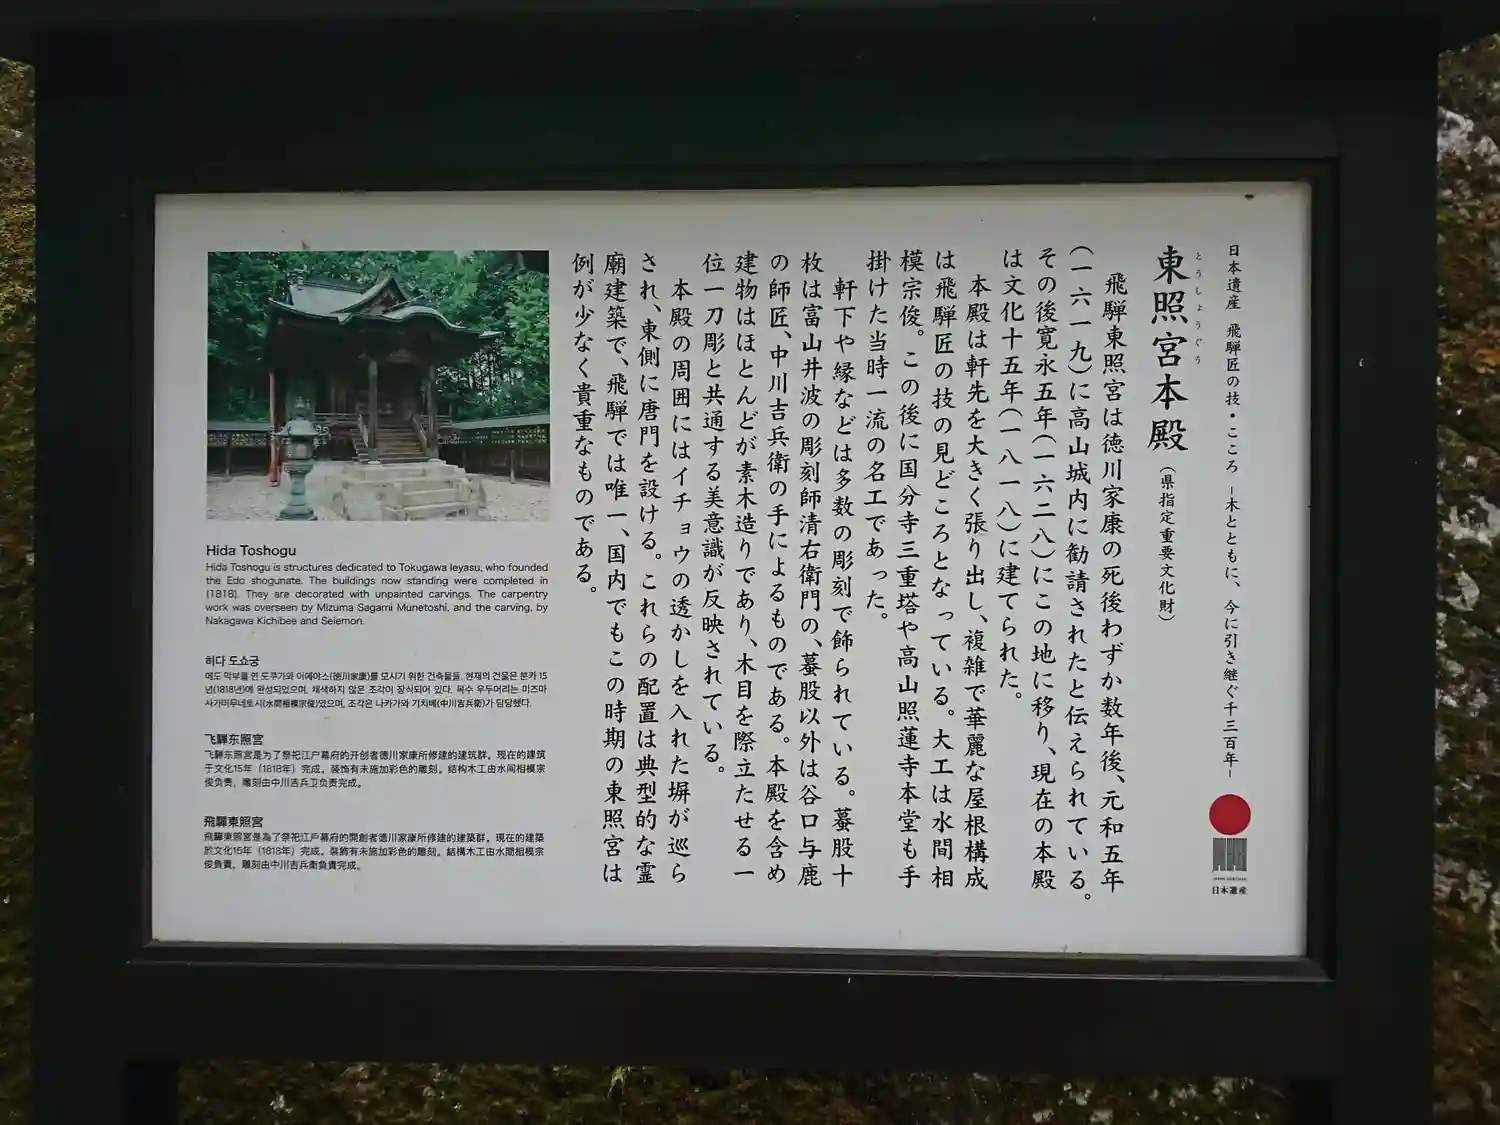 日本遺産 飛騨匠の技・こころ −木とともに、今に引き継ぐ千三百年−
日本遺産
東照宮本殿(県指定重要文化財)
とうしょうぐう
飛騨東照宮は徳川家康の死後わずか数年後、元和五年
(一六一九)に高山城内に勧請されたと伝えられている。
その後寛永五年(一六二八)にこの地に移り、現在の本殿
は文化十五年(一八一八)に建てられた。
本殿は軒先を大きく張り出し、複雑で華麗な屋根構成
は飛騨匠の技の見どころとなっている。大工は水間相
模宗俊。この後に国分寺三重塔や高山照蓮寺本堂も手
掛けた当時一流の名工であった。
軒下や縁などは多数の彫刻で飾られている。蟇股十
枚は富山井波の彫刻師清右衛門の、蟇股以外は谷口与鹿
の師匠、中川吉兵衛の手によるものである。本殿を含め
建物はほとんどが素木造りであり、木目を際立たせる一
位一刀彫と共通する美意識が反映されている。
本殿の周囲にはイチョウの透かしを入れた塀が巡ら
され、東側に唐門を設ける。これらの配置は典型的な霊
廟建築で、飛騨では唯一、国内でもこの時期の東照宮は
例が少なく貴重なものである。
Hida Toshogu
Hida Toshogu is structures dedicated to Tokugawa Ieyasu, who founded
the Edo shogunate. The buildings now standing were completed in
(1818). They are decorated with unpainted carvings. The carpentry
work was overseen by Mizuma Sagami Munetoshi, and the carving, by
Nakagawa Kichibee and Seiemon.
히다 도쇼궁
에도 막부를 연 도쿠가와 이에야스(德川家康)를 모시기 위한 건축물들. 현재의 건물은 분카 15
년(1818년)에 완성되었으며, 채색하지 않은 조각이 장식되어 있다. 목수 우두머리는 미즈마
사가미무네토시(水間相模宗俊)였으며, 조각은 나카가와 기치베(中川吉兵衛)가 담당했다.
飞騨东照宫
飞騨东照宫是为了祭祀江户幕府的开创者德川家康所修建的建筑群。现在的建筑
于文化15年（1818年）完成。装饰有未施加彩色的雕刻。结构木工由水间相模宗
俊负责，雕刻由中川吉兵卫负责完成。
飛驒東照宮
飛驒東照宮是為了祭祀江戶幕府的開創者德川家康所修建的建築群。現在的建築
於文化15年（1818年）完成。裝飾有未施加彩色的雕刻。結構木工由水間相模宗
俊負責，雕刻由中川吉兵衛負責完成。